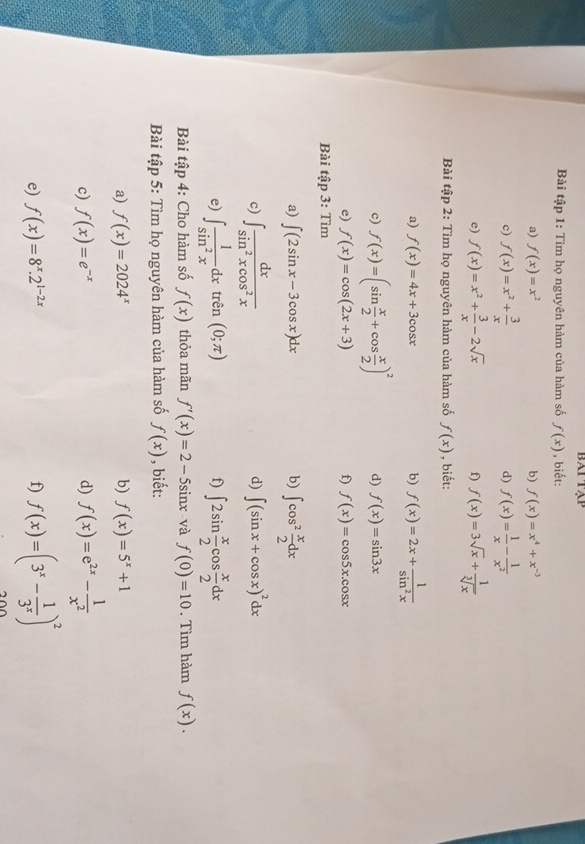 BÀI TẬP
Bài tập 1: Tìm họ nguyên hàm của hàm số f(x), biết:
a) f(x) = x² b) f(x) = x⁴ + x⁻³
c) f(x) = x² + 3/x d) f(x) = 1/x − 1/x²
e) f(x) = x² + 3/x − 2√x f) f(x) = 3√x + 1/∛x
Bài tập 2: Tìm họ nguyên hàm của hàm số f(x), biết:
a) f(x) = 4x + 3cosx b) f(x) = 2x + 1/sin²x
c) f(x) = (sin x/2 + cos x/2)² d) f(x) = sin3x
e) f(x) = cos(2x + 3) f) f(x) = cos5x.cosx
Bài tập 3: Tìm
a) ∫(2sin x − 3cos x)dx b) ∫cos² x/2 dx
c) ∫dx/(sin² x cos² x) d) ∫(sin x + cos x)² dx
e) ∫1/sin² x dx trên (0; π) f) ∫2sin x/2 cos x/2 dx
Bài tập 4: Cho hàm số f(x) thỏa mãn f'(x) = 2 − 5sinx và f(0) = 10. Tìm hàm f(x).
Bài tập 5: Tìm họ nguyên hàm của hàm số f(x), biết:
a) f(x) = 2024ˣ b) f(x) = 5ˣ + 1
c) f(x) = e⁻ˣ d) f(x) = e²ˣ − 1/x²
e) f(x) = 8ˣ.2¹⁻²ˣ f) f(x) = (3ˣ − 1/3ˣ)²